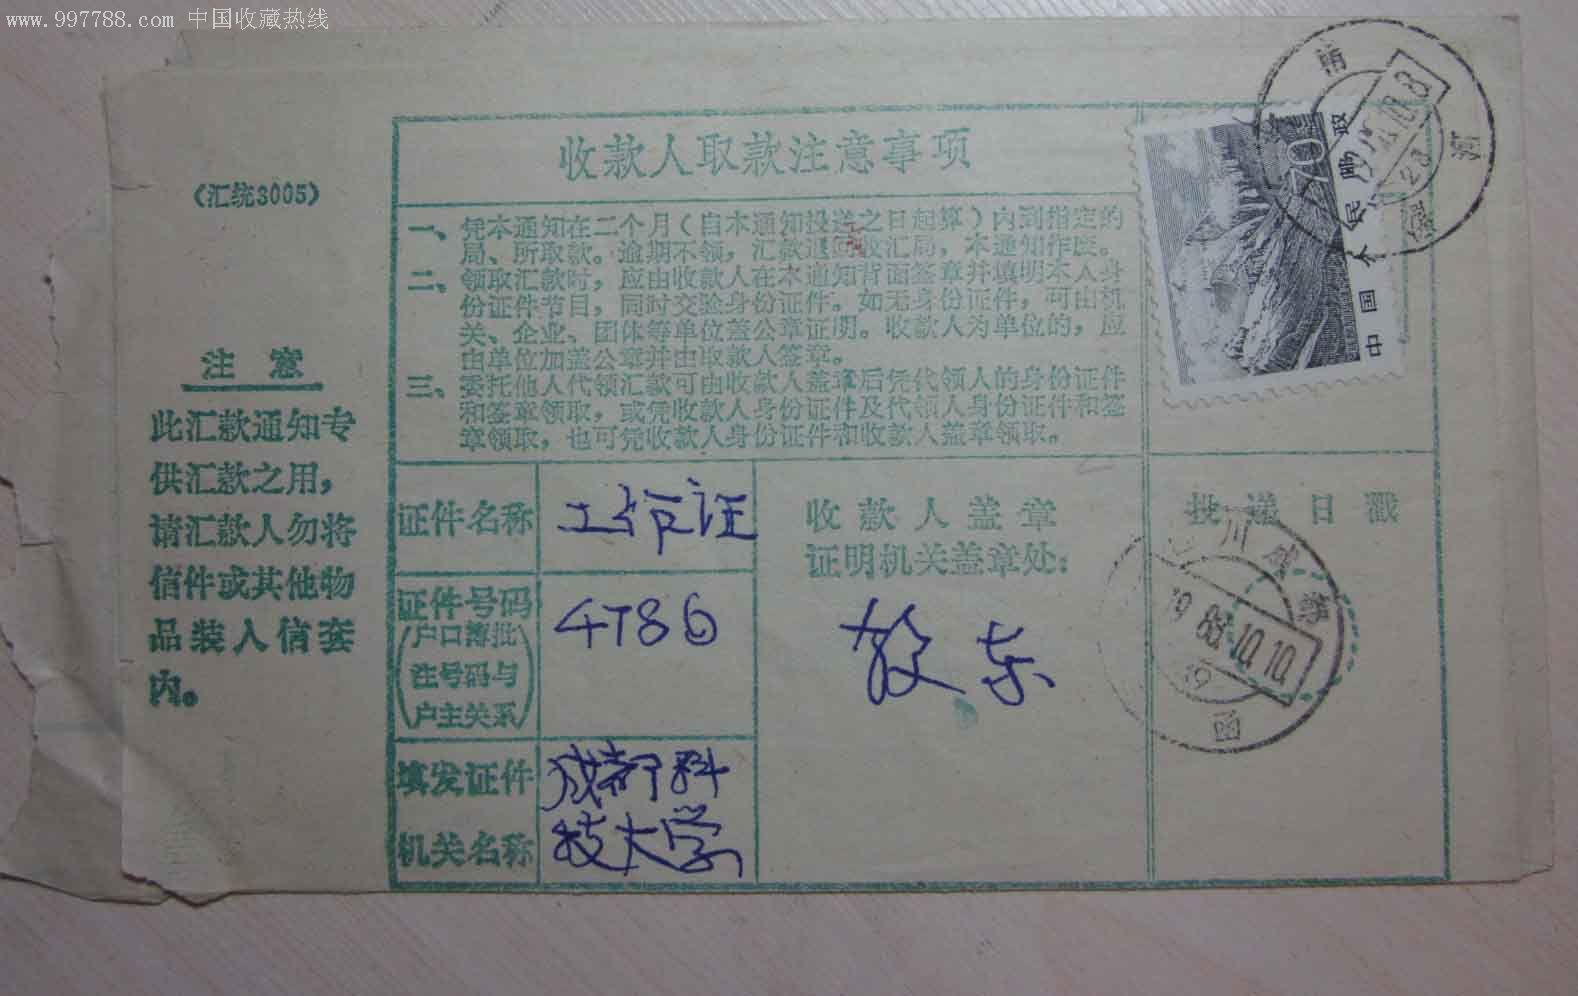 www.997788.com 中国收藏热线
《汇统3005》
注意
此汇款通知专
供汇款之用，
请汇款人勿将
信件或其他物
品装入信套
内。
收款人取款注意事项
一、凭本通知在二个月（自本通知投送之日起算）内到指定的
局、所取款。逾期不领，汇款退回收汇局，本通知作废。
二、领取汇款时，应由收款人在本通知背面签章并填明本人身
份证件节目，同时交验身份证件。如无身份证件，可由机
关、企业、团体等单位盖公章证明。收款人为单位的，应
由单位加盖公章并由收款人签章。
三、委托他人代领汇款可由收款人盖章后凭代领人的身份证件
和签章领取，或凭收款人身份证件及代领人身份证件和签
章领取，也可凭收款人身份证件和收款人盖章领取。
证件名称
工作证
证件号码
（户口簿批
注号码与
户主关系）
4786
填发证件
机关名称
成都科
技大学
收款人盖章
证明机关盖章处：
东
投递日戳
70
中国人民邮政
10.8
川成都
1985.10.10
19